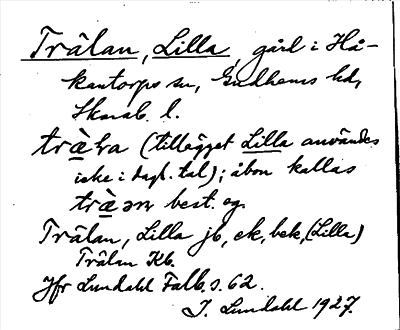 Trålan, Lilla, gård i Hå-
kantorps sn, Gudhems hd,
Skarab. l.
trὰ̀ɫa (tillägget Lilla användes
icke i dagl. tal); åbon kallas
trὰ̀ən best. sg.
Trålan, Lilla jb, ek, bek, (Lilla)
Trålan Kb.
Jfr Lundahl Falb. s. 62.
I. Lundahl 1927.